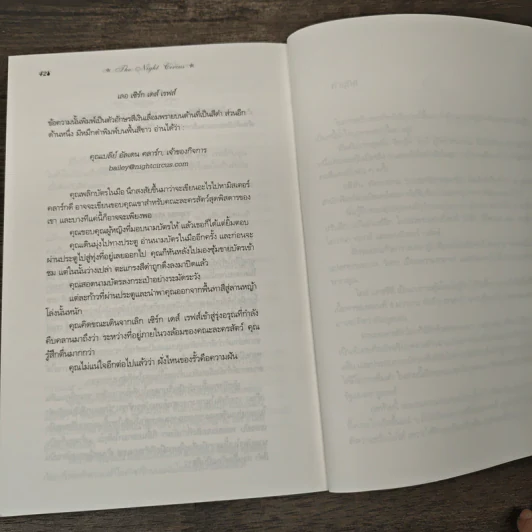 The Night Circus
เลอ เซิร์ก เดส์ เรฟส์
ข้อความนั้นพิมพ์เป็นตัวอักษรสีเงินเลื่อมพรายบนด้านที่เป็นสีดำ ส่วนอีก
ด้านหนึ่ง มีหมึกดำพิมพ์บนพื้นสีขาว อ่านได้ว่า :
คุณเบลีย์ อัลเดน คลาร์ก, เจ้าของกิจการ
bailey@nightcircus.com
คุณพลิกบัตรในมือ นึกสงสัยขึ้นมาว่าจะเขียนอะไรไปหามิสเตอร์
คลาร์กดี อาจจะเขียนขอบคุณเขาสำหรับคณะละครสัตว์สุดพิสดารของ
เขา และบางทีแค่นี้ก็อาจจะเพียงพอ
คุณขอบคุณผู้หญิงที่มอบนามบัตรให้ แล้วเธอก็ได้แต่ยิ้มตอบ
คุณเดินมุ่งไปทางประตู อ่านนามบัตรในมืออีกครั้ง และก่อนจะ
ผ่านประตูไปสู่ทุ่งที่อยู่เลยออกไป คุณก็หันหลังไปมองซุ้มขายบัตรเข้า
ชม แต่ในนั้นว่างเปล่า ตะแกรงสีดำถูกดึงลงมาปิดแล้ว
คุณสอดนามบัตรลงกระเป๋าอย่างระมัดระวัง
แต่ละก้าวที่ผ่านประตูและนำพาคุณออกจากพื้นทาสีสู่ลานหญ้า
โล่งนั้นหนัก
คุณคิดขณะเดินจากเลิก เซิร์ก เดส์ เรฟส์เข้าสู่รุ่งอรุณที่กำลัง
คืบคลานมาถึงว่า ระหว่างที่อยู่ภายในวงล้อมของคณะละครสัตว์ คุณ
รู้สึกตื่นมากกว่า
คุณไม่แน่ใจอีกต่อไปแล้วว่า ฝั่งไหนของรั้วคือความฝัน